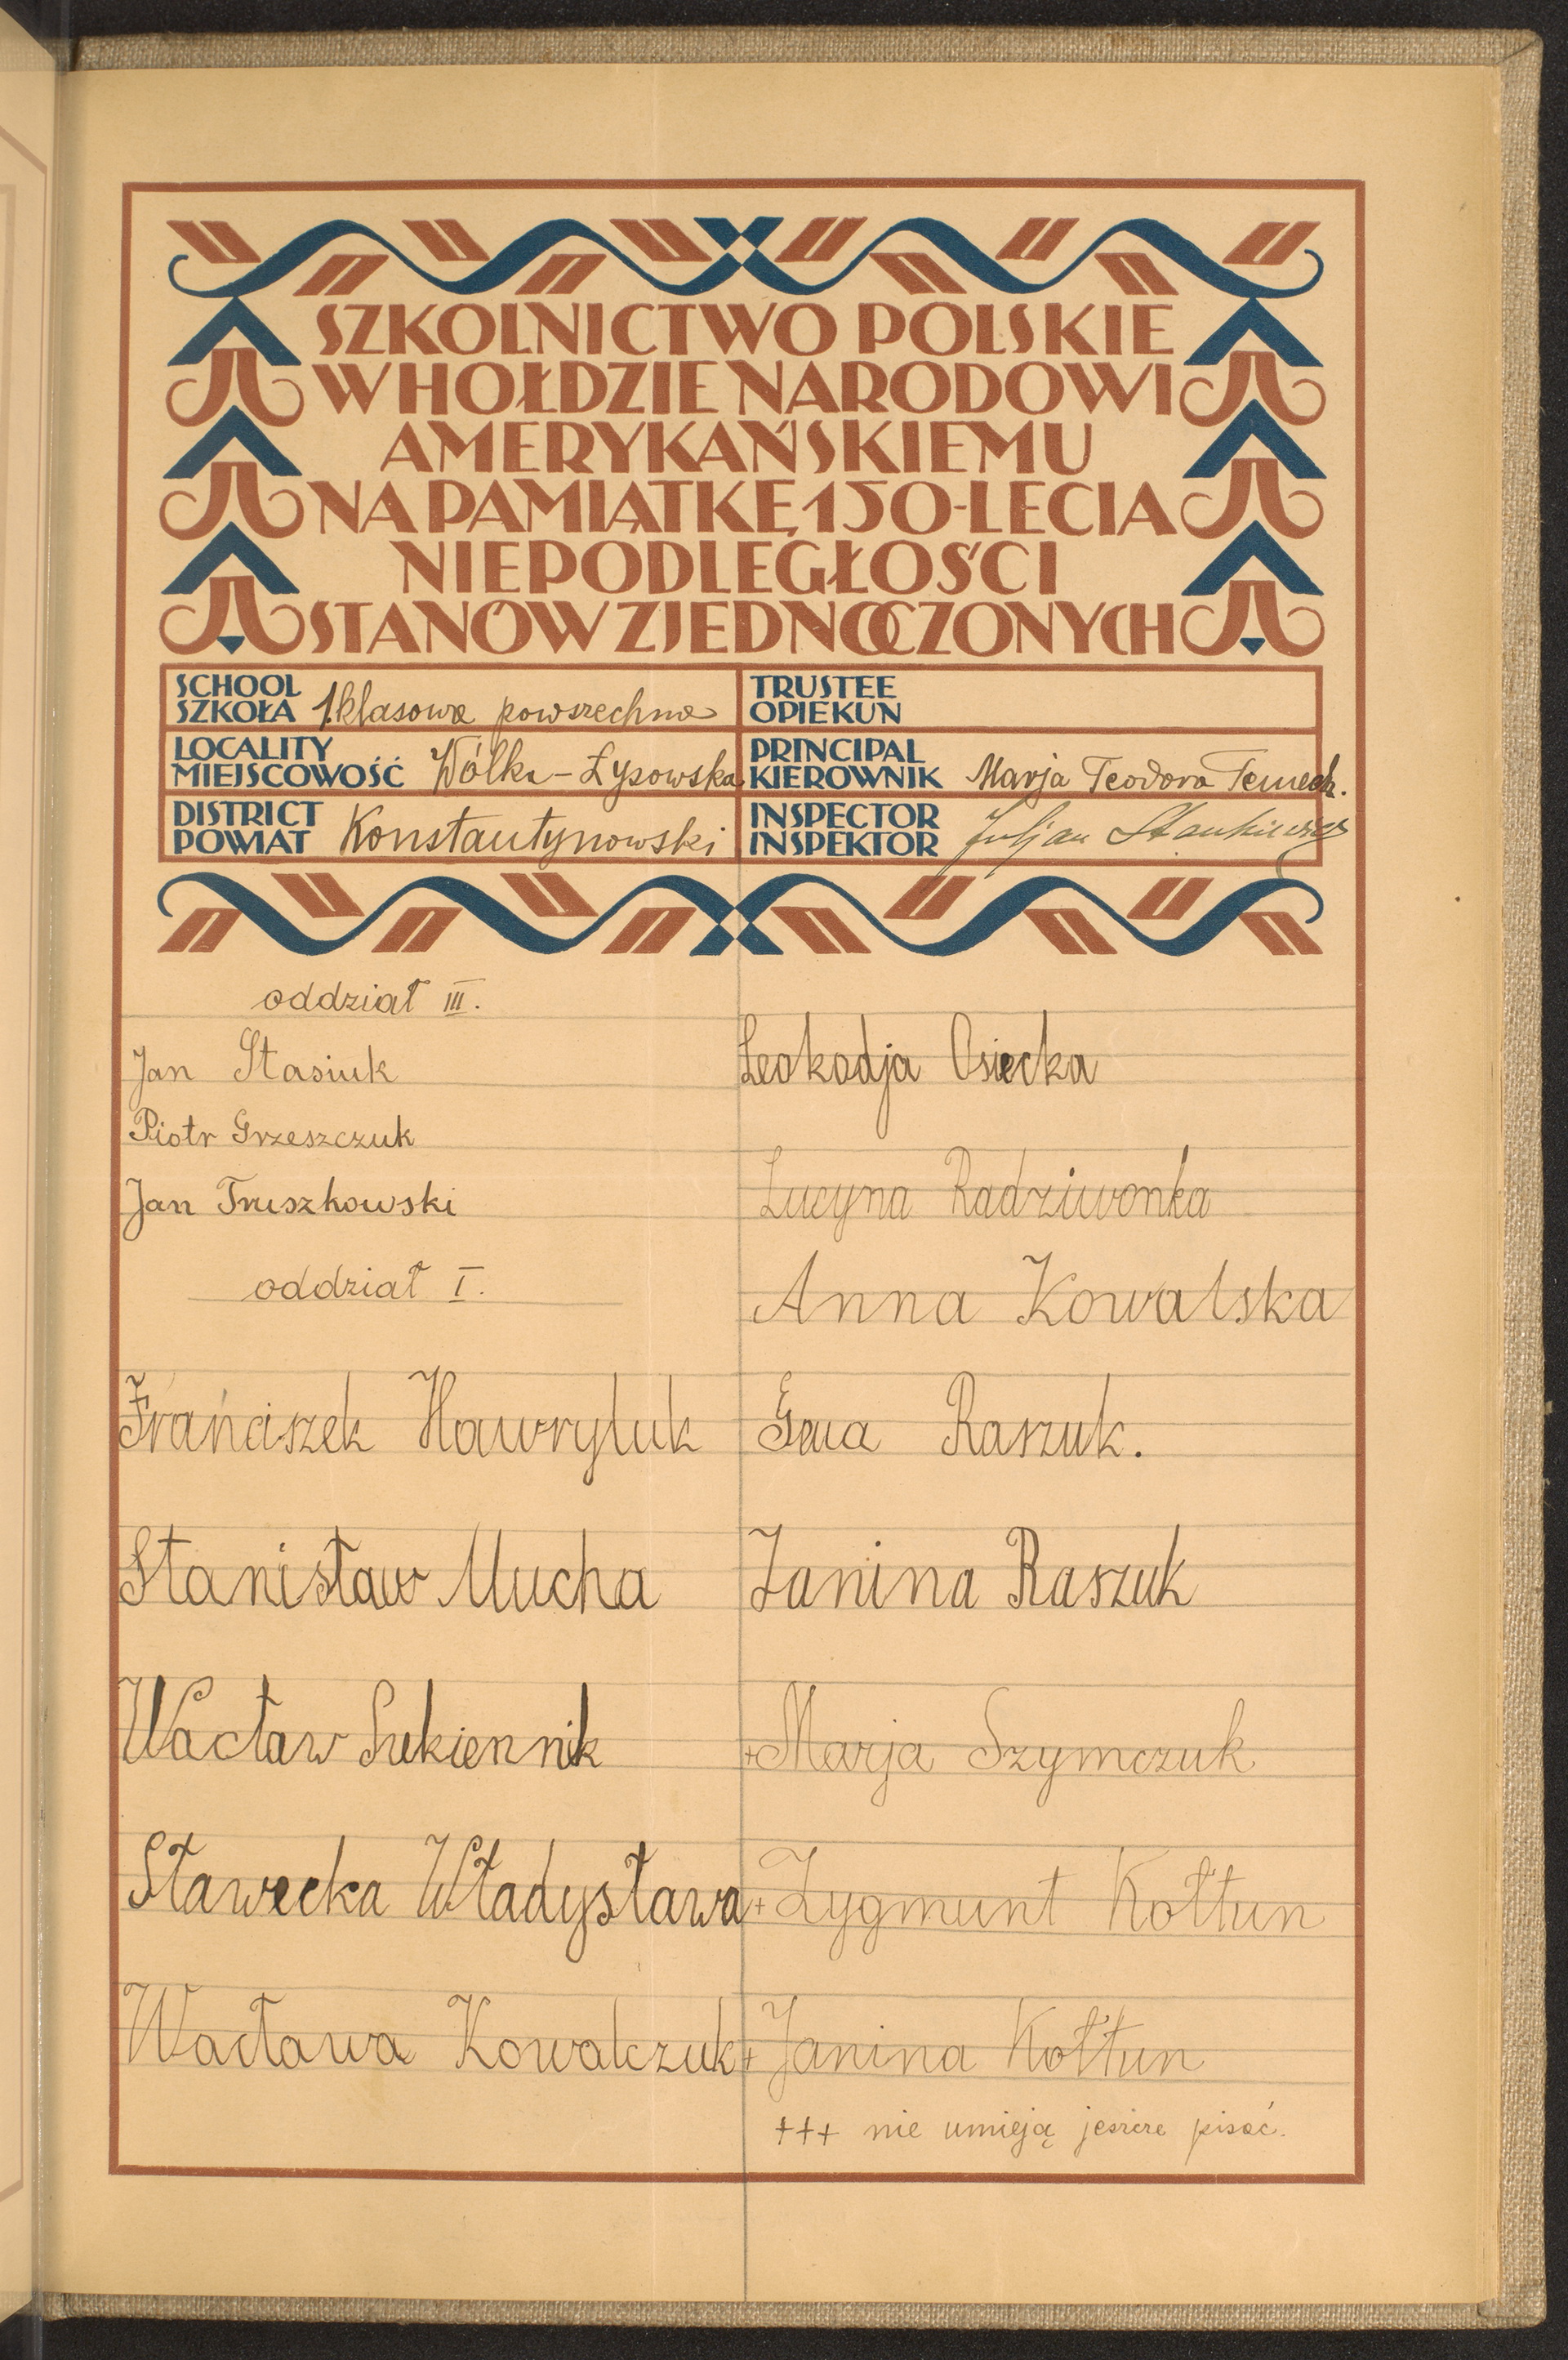 SZKOLNICTWO POLSKIE
W HOŁDZIE NARODOWI
AMERYKAŃSKIEMU
NA PAMIĄTKĘ 150-LECIA
NIEPODLEGŁOŚCI
STANÓW ZJEDNOCZONYCH
SCHOOL
SZKOŁA 1. klasowa powszechna
LOCALITY
MIEJSCOWOŚĆ Wólka-Łysowska
DISTRICT
POWIAT Konstantynowski
TRUSTEE
OPIEKUN
PRINCIPAL
KIEROWNIK Marja Teodora
INSPECTOR
INSPEKTOR Juljan Stankiewicz
oddział III.
Jan Stasiuk
Piotr Grzeszczuk
Jan Truszkowski
oddział I.
Frańciszek Hawryluk
Stanisław Mucha
Wacław Sukiennik
Sławecka Władysława
Wacława Kowalczuk
Leokadja Osiecka
Lucyna Radziwonka
Anna Kowalska
Ewa Raszuk.
Janina Raszuk
+ Marja Szymczuk
+ Zygmunt Kołtun
+ Janina Kołtun
+++ nie umieją jeszcze pisać.